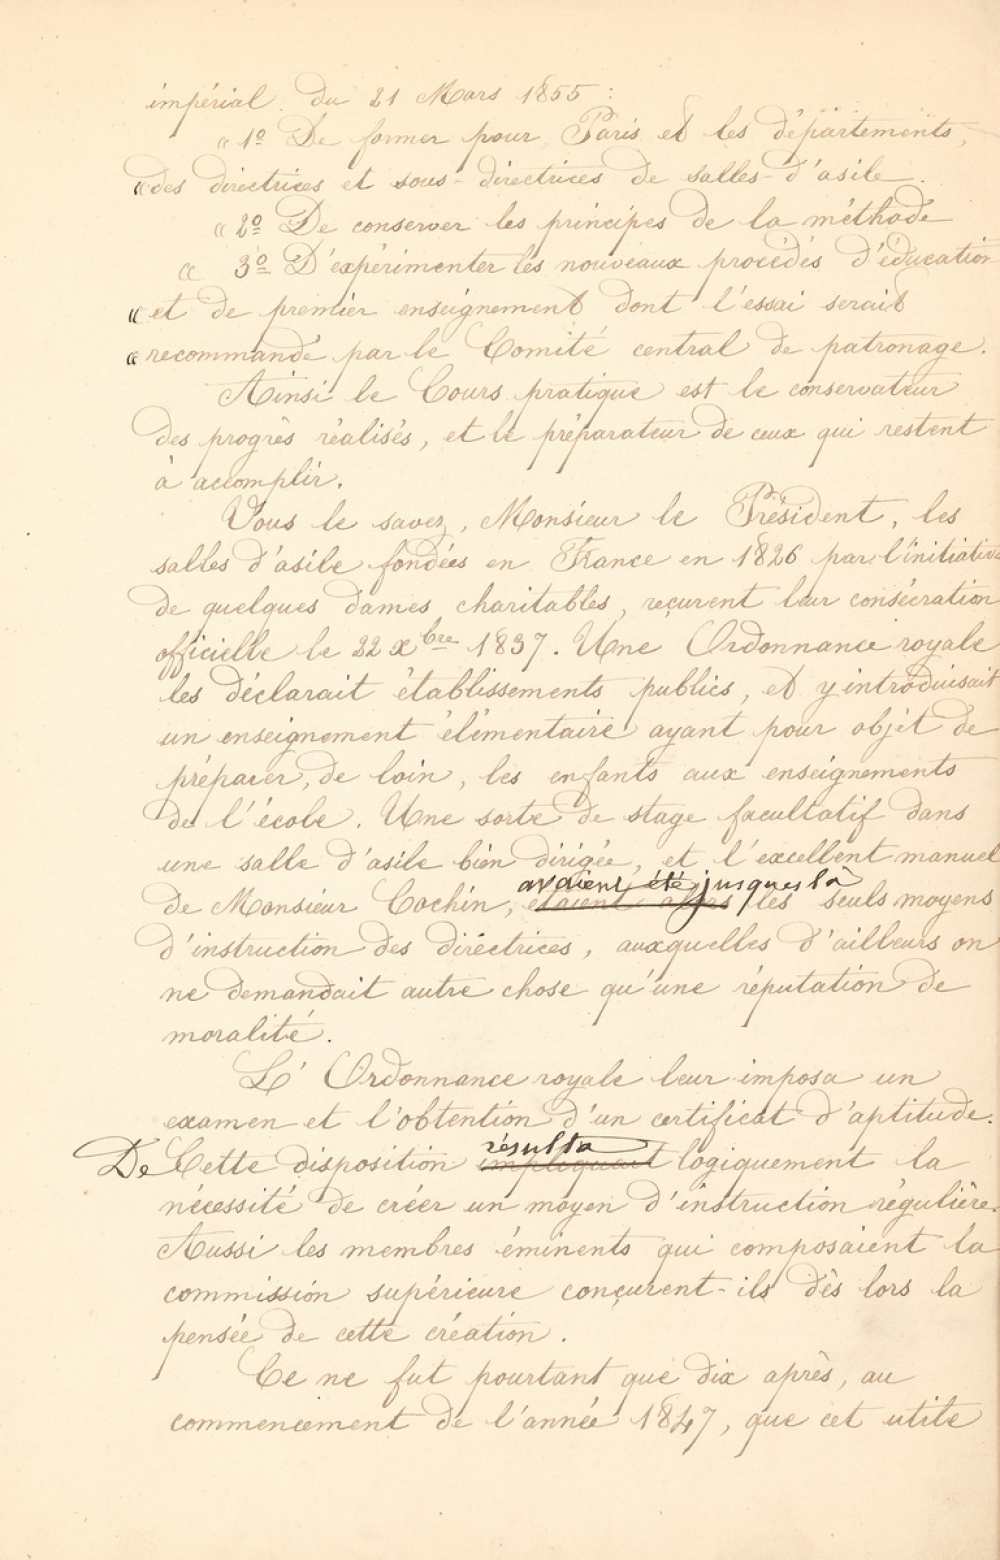 impérial du 21 Mars 1855 :
« 1º De former pour Paris et les départements,
« des directrices et sous-directrices de salles-d'asile.
« 2º De conserver les principes de la méthode
« 3º D'expérimenter les nouveaux procédés d'éducation
« et de premier enseignement dont l'essai serait
« recommandé par le Comité central de patronage.
Ainsi le Cours pratique est le conservateur
des progrès réalisés, et le préparateur de ceux qui restent
à accomplir.
Vous le savez, Monsieur le Président, les
salles d'asile fondées en France en 1826 par l'initiative
de quelques dames charitables, reçurent leur consécration
officielle le 22 xbre 1837. Une Ordonnance royale
les déclarait établissements publics, et y introduisait
un enseignement élémentaire ayant pour objet de
préparer, de loin, les enfants aux enseignements
de l'école. Une sorte de stage facultatif dans
une salle d'asile bien dirigée, et l'excellent manuel
avaient été jusques là
de Monsieur Cochin, étaient alors les seuls moyens
d'instruction des directrices, auxquelles d'ailleurs on
ne demandait autre chose qu'une réputation de
moralité.
L'Ordonnance royale leur imposa un
examen et l'obtention d'un certificat d'aptitude.
résulta
De Cette disposition impliquait logiquement la
nécessité de créer un moyen d'instruction régulière.
Aussi les membres éminents qui composaient la
commission supérieure conçurent-ils dès lors la
pensée de cette création.
Ce ne fut pourtant que dix après, au
commencement de l'année 1847, que cet utile